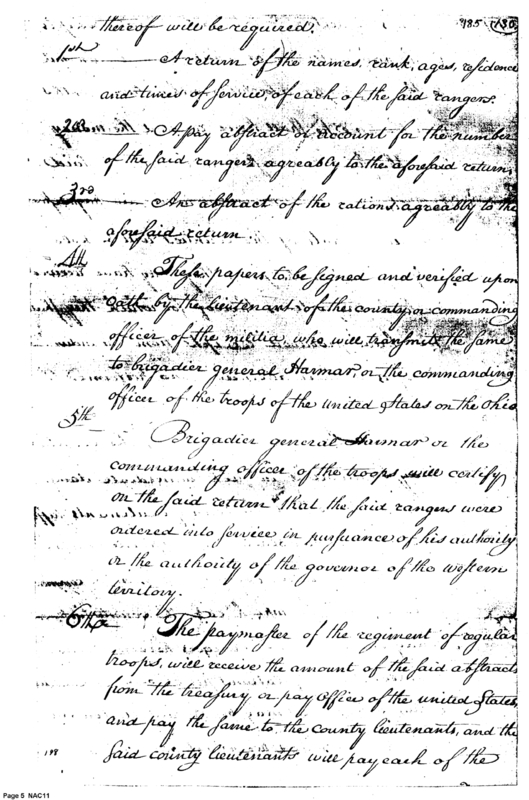 985 (130)
thereof will be required.
1st A return of the names, rank, ages, residence
and times of service, of each of the said rangers.
2nd A pay abstract or account for the number
of the said rangers agreably to the aforesaid return
3rd An abstract of the rations, agreably to the
aforesaid return
4th These papers to be signed and verified upon
oath by the lieutenant of the county or commanding
officer of the militia, who will transmit the same
to brigadier general Harmar, or the commanding
officer of the troops of the united States on the Ohio
5th Brigadier general Harmar or the
commanding officer of the troops will certify
on the said return that the said rangers were
ordered into service in pursuance of his authority
or the authority of the governor of the western
territory.
6th The paymaster of the regiment of regular
troops, will receive the amount of the said abstracts
from the treasury or pay Office of the united States,
and pay the same to the county lieutenants, and the
said county lieutenants will pay each of the
198
Page 5 NAC11